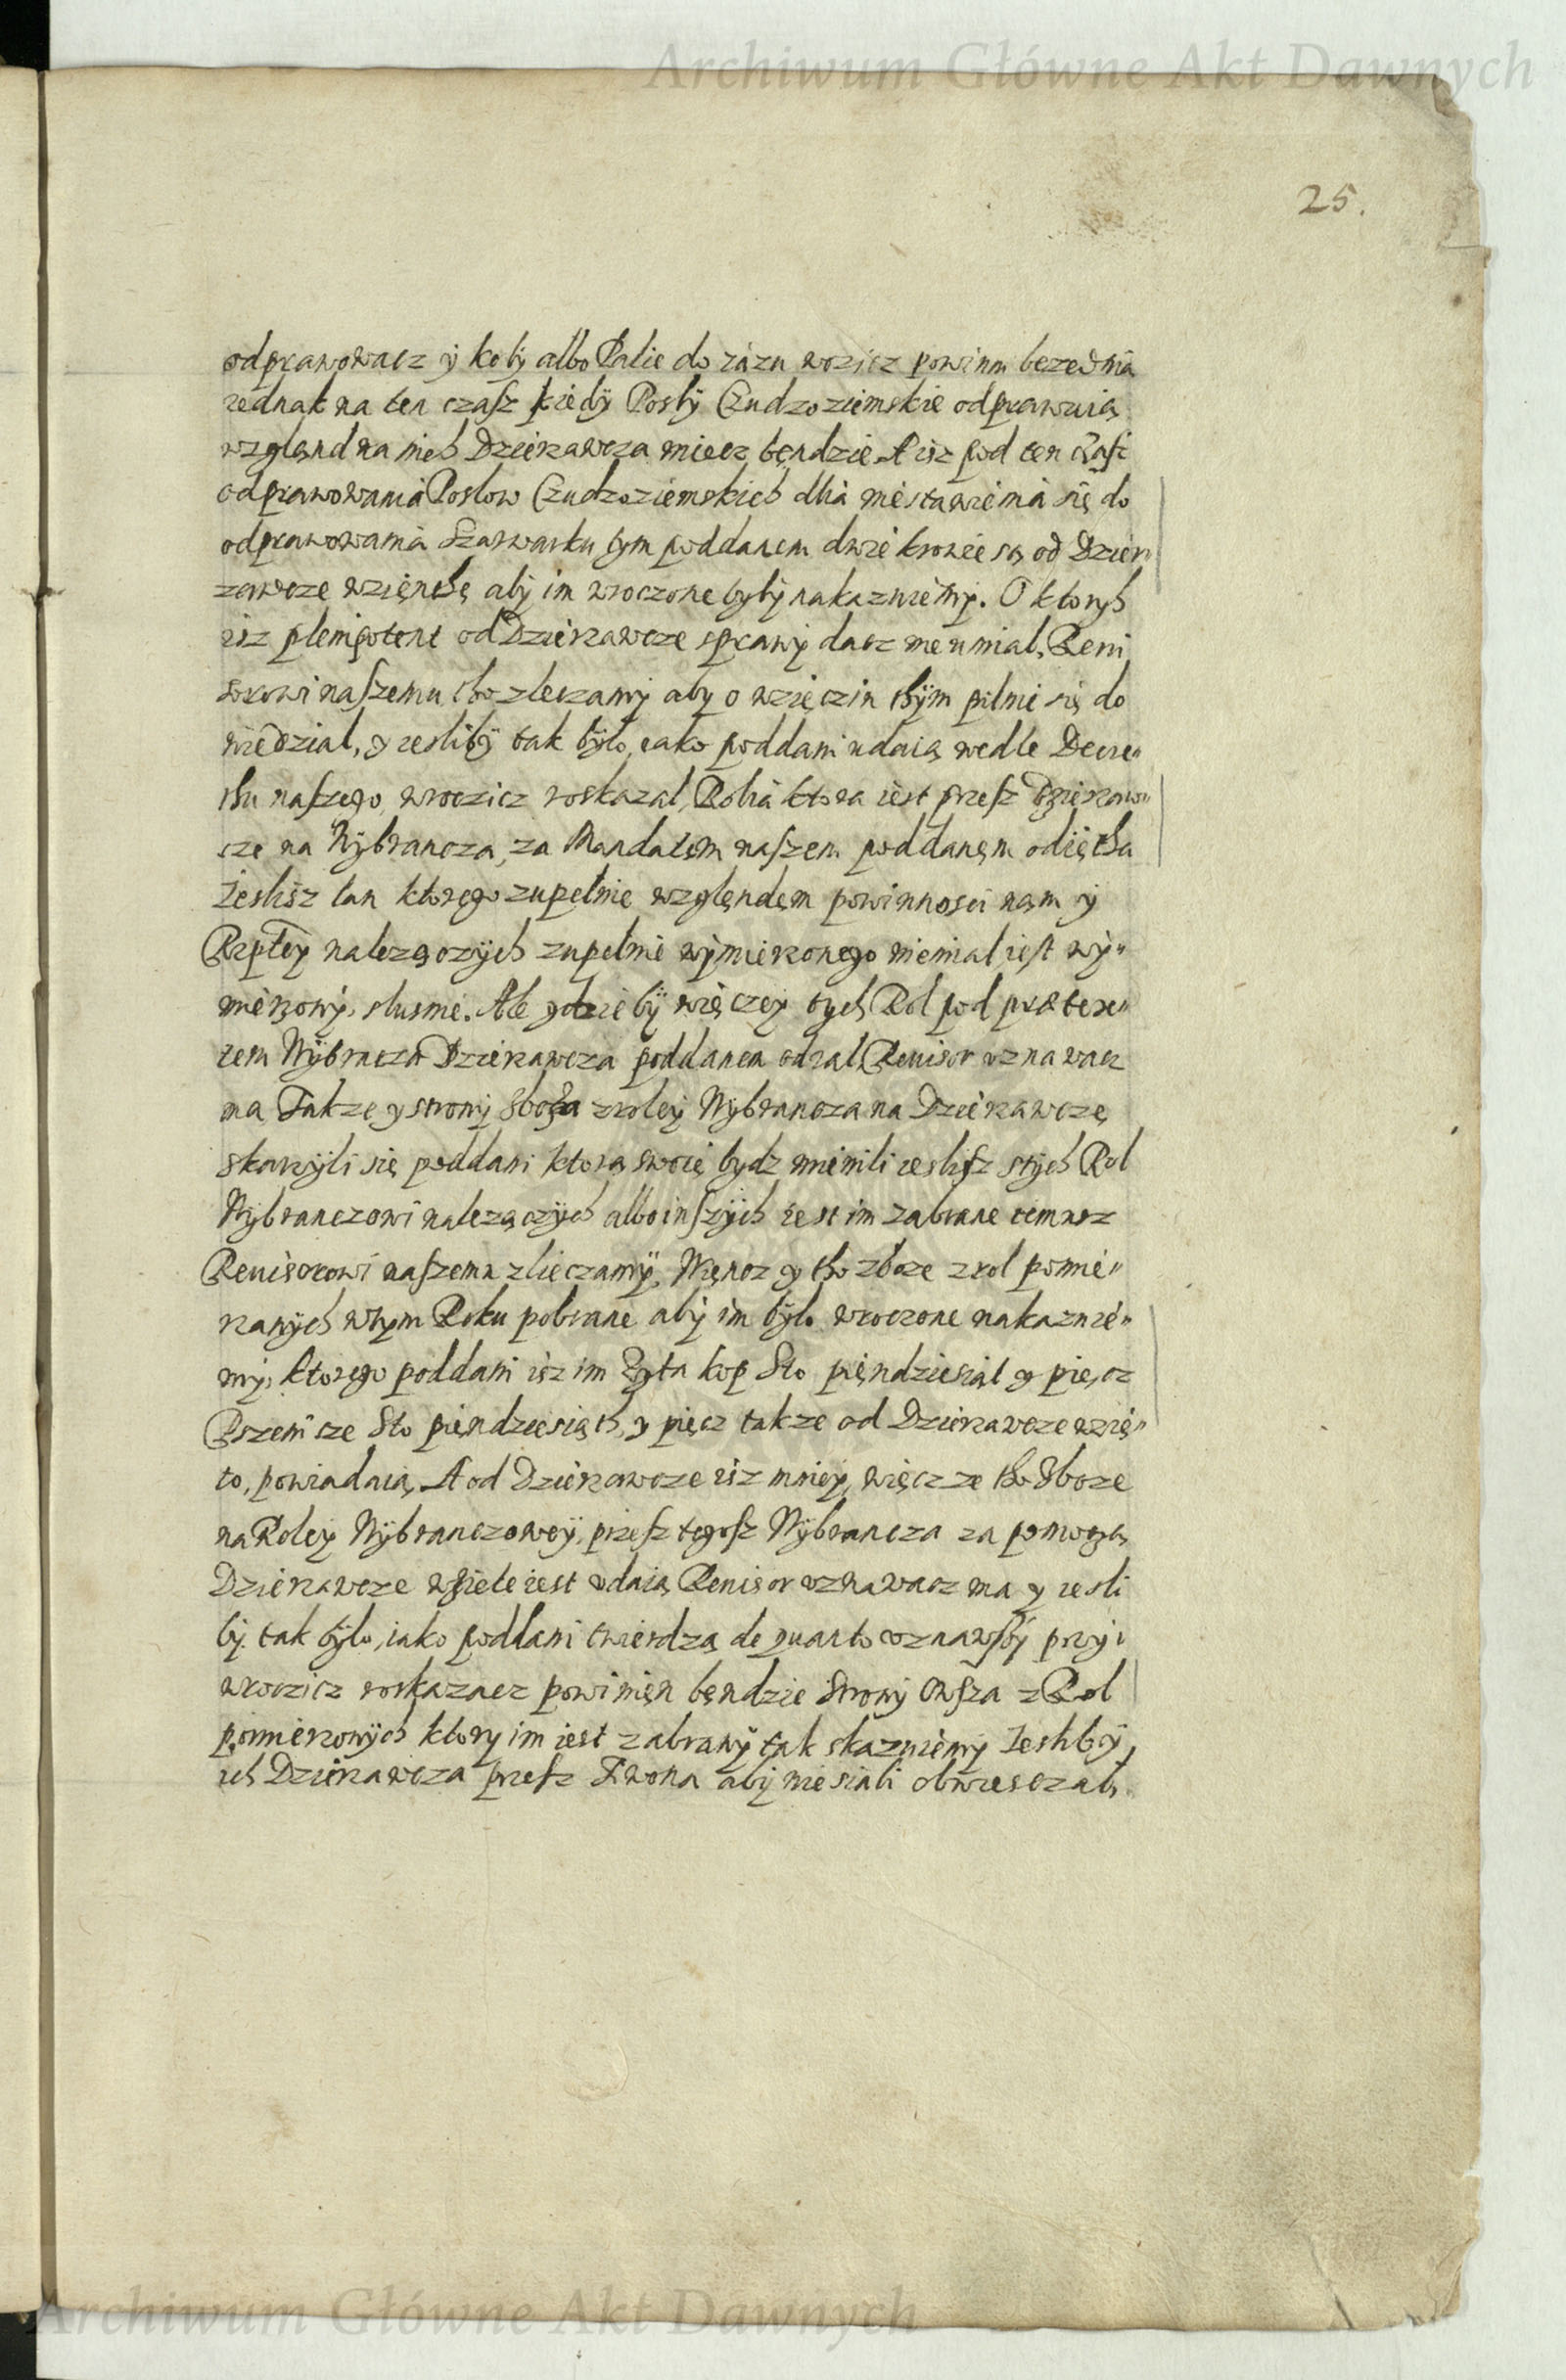 Archiwum Główne Akt Dawnych
25.
odprawowacz ÿ koly albo Palie do iazu wozicz powinni beze dnia
iednak na ten czasz kiedÿ Posly Czudzoziemskie odprawuią
wzgląnd na nich Dzierzawcza miecz bęndzie A isz pod ten czasz
odprawowania Poslow Czudzoziemskich dlia niestawienia się do
odprawowania Szarwarku tym poddanem dwie krowie są od Dzier
zawcze wzięnthe aby im wroczone byly nakazuiemy. O ktorych
isz plenipotent od Dzierzawcze sprawy dacz nie umial, Reui
sorowi naszemu tho zleczamy aby o wzięcziu thÿm pilnie się do
wiedzial, y iesliby tak bylo, iako poddani udaią wedle Decre„
thu naszego wroczicz roskazal, Rolia ktora iest przesz Dzierzaw„
cze na Wybrancza, za Mandatem naszem poddanem odiętha
Ieslisz lan ktorego zupelnie wzglęndem powinnosci nam y
Rzpltey nalezączych zupelnie wymierzonego niemial iest wy„
mierzony, slusnie. Ale gdzieby więczey tych Rol pod praetex„
tem Wybrancza Dzierzawcza poddanem odial Reuisor uznawacz
ma, Takze y strony Zboza z roley Wybrancza na Dzierzawczę
skarzyli się poddani ktorą swoię bydz mienili ieslisz s tych Rol
Wybranczowi nalezączych albo inszych iest im zabrane temusz
Reuisorowi naszemu zlieczamy, Więncz y tho zboze z rol pomie„
rzanych w tym Roku pobrane aby im bylo wroczone nakazuie„
my, ktorego poddani isz im Zyta kop Sto pięndziesiąt y pięcz
Pszenicze Sto pięndziesiąth, y pięcz takze od Dzierzawcze wzię„
to, powiadaią, A od Dzierzawcze isz mniey, więcz ze tho Zboze
na Roley Wybranczowey, przesz tegosz Wybrancza za pomoczą
Dzierzawcze wsiete iest udaią Reuisor uznawacz ma y iesli
by tak bylo, iako poddani twierdzą de quanto uznawszy przy„
wroczicz roskazacz powinięn bęndzie Strony Owsza z Rol
pomierzonych ktory im iest zabrany tak skazuiemy Iesliby
ich Dzierzawcza przesz Twona aby nie siali obwiesczal,
Archiwum Główne Akt Dawnych